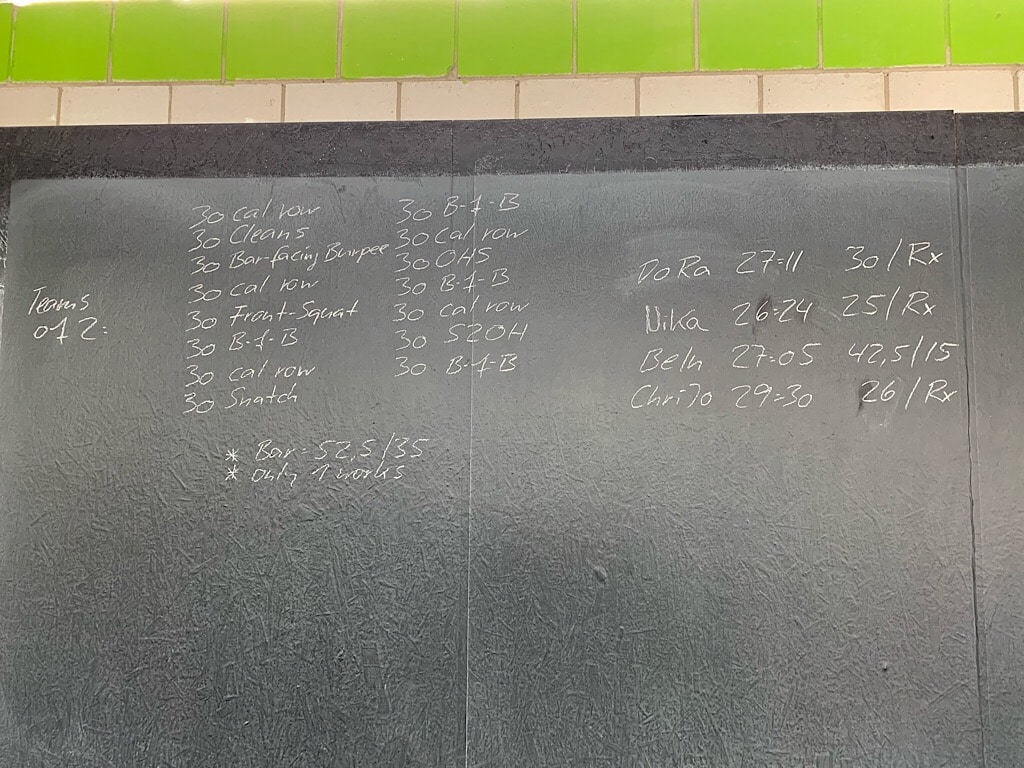 Teams
of 2:
30 Cal row
30 Cleans
30 Bar-facing Burpee
30 cal row
30 Front-Squat
30 B-f-B
30 cal row
30 Snatch
30 B-f-B
30 Cal row
30 OHS
30 B-f-B
30 cal row
30 S2OH
30 B-f-B
* Bar = 52,5/35
* only 1 works
DoRa 27:11 30/Rx
NiKa 26:24 25/Rx
BeIn 27:05 42,5/15
ChriJo 29:30 26/Rx